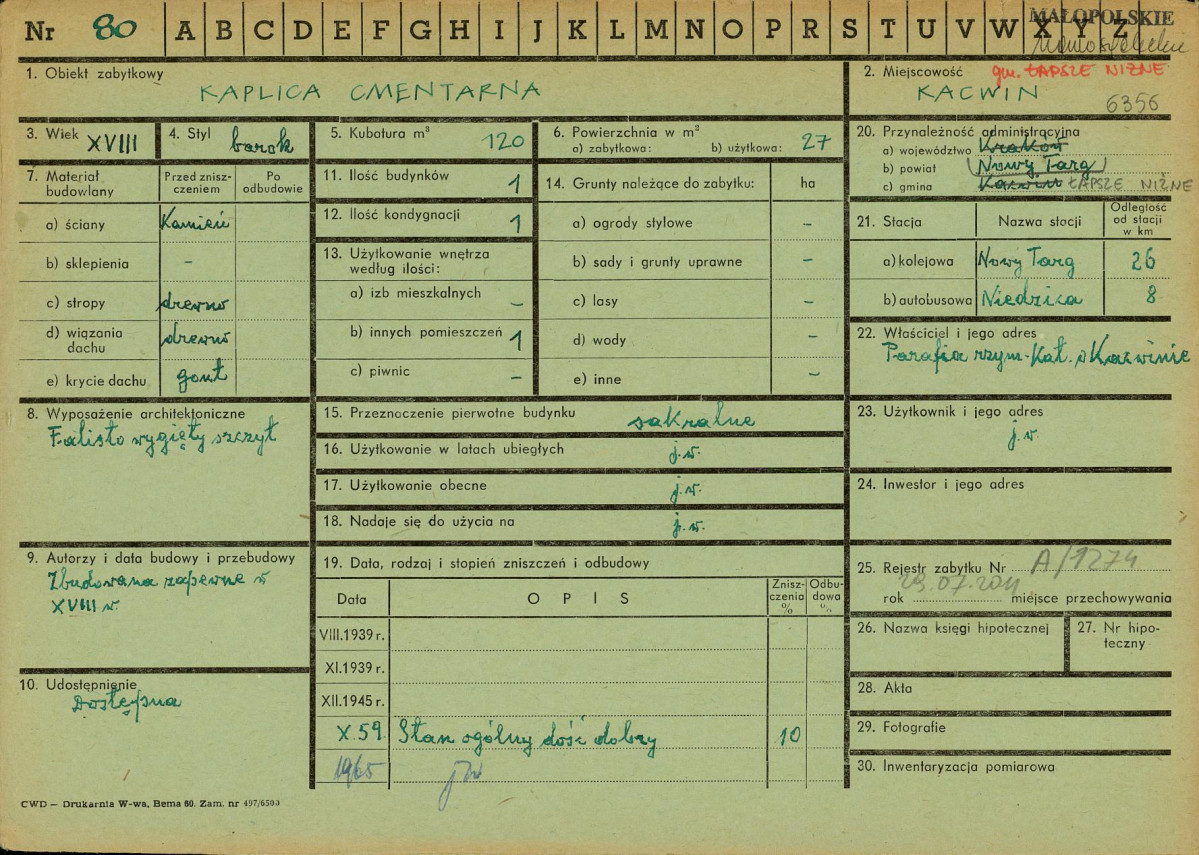 Nr 80 A B C D E F G H I J K L M N O P R S T U V W X Y Z
MAŁOPOLSKIE
1. Obiekt zabytkowy
KAPLICA CMENTARNA
2. Miejscowość gm. ŁAPSZE NIŻNE
KACWIN
6356
3. Wiek XVIII
4. Styl barok
5. Kubatura m³ 120
6. Powierzchnia w m²
a) zabytkowa: b) użytkowa: 27
7. Materiał budowlany
Przed zniszczeniem
Po odbudowie
a) ściany Kamień
b) sklepienia –
c) stropy drewno
d) wiązania dachu drewno
e) krycie dachu gont
8. Wyposażenie architektoniczne
Falisto wygięty szczyt
9. Autorzy i data budowy i przebudowy
Zbudowana zapewne w
XVIII w.
10. Udostępnienie
Dostępna
11. Ilość budynków 1
12. Ilość kondygnacji 1
13. Użytkowanie wnętrza
według ilości:
a) izb mieszkalnych –
b) innych pomieszczeń 1
c) piwnic –
14. Grunty należące do zabytku: ha
a) ogrody stylowe –
b) sady i grunty uprawne –
c) lasy –
d) wody –
e) inne –
15. Przeznaczenie pierwotne budynku sakralne
16. Użytkowanie w latach ubiegłych j.w.
17. Użytkowanie obecne j.w.
18. Nadaje się do użycia na j.w.
19. Data, rodzaj i stopień zniszczeń i odbudowy
Data
OPIS
Zniszczenia %
Odbudowa %
VIII.1939 r.
XI.1939 r.
XII.1945 r.
X.59 Stan ogólny dość dobry 10
1965 jw
20. Przynależność administracyjna
a) województwo Kraków
b) powiat Nowy Targ
c) gmina Kacwin ŁAPSZE NIŻNE
21. Stacja
Nazwa stacji
Odległość od stacji w km
a) kolejowa Nowy Targ 26
b) autobusowa Niedzica 8
22. Właściciel i jego adres
Parafia rzym-Kat. w Kacwinie
23. Użytkownik i jego adres
j.w.
24. Inwestor i jego adres
25. Rejestr zabytku Nr A/1274
23.07.2011
rok miejsce przechowywania
26. Nazwa księgi hipotecznej
27. Nr hipoteczny
28. Akta
29. Fotografie
30. Inwentaryzacja pomiarowa
CWD — Drukarnia W-wa, Bema 60. Zam. nr 497/6500